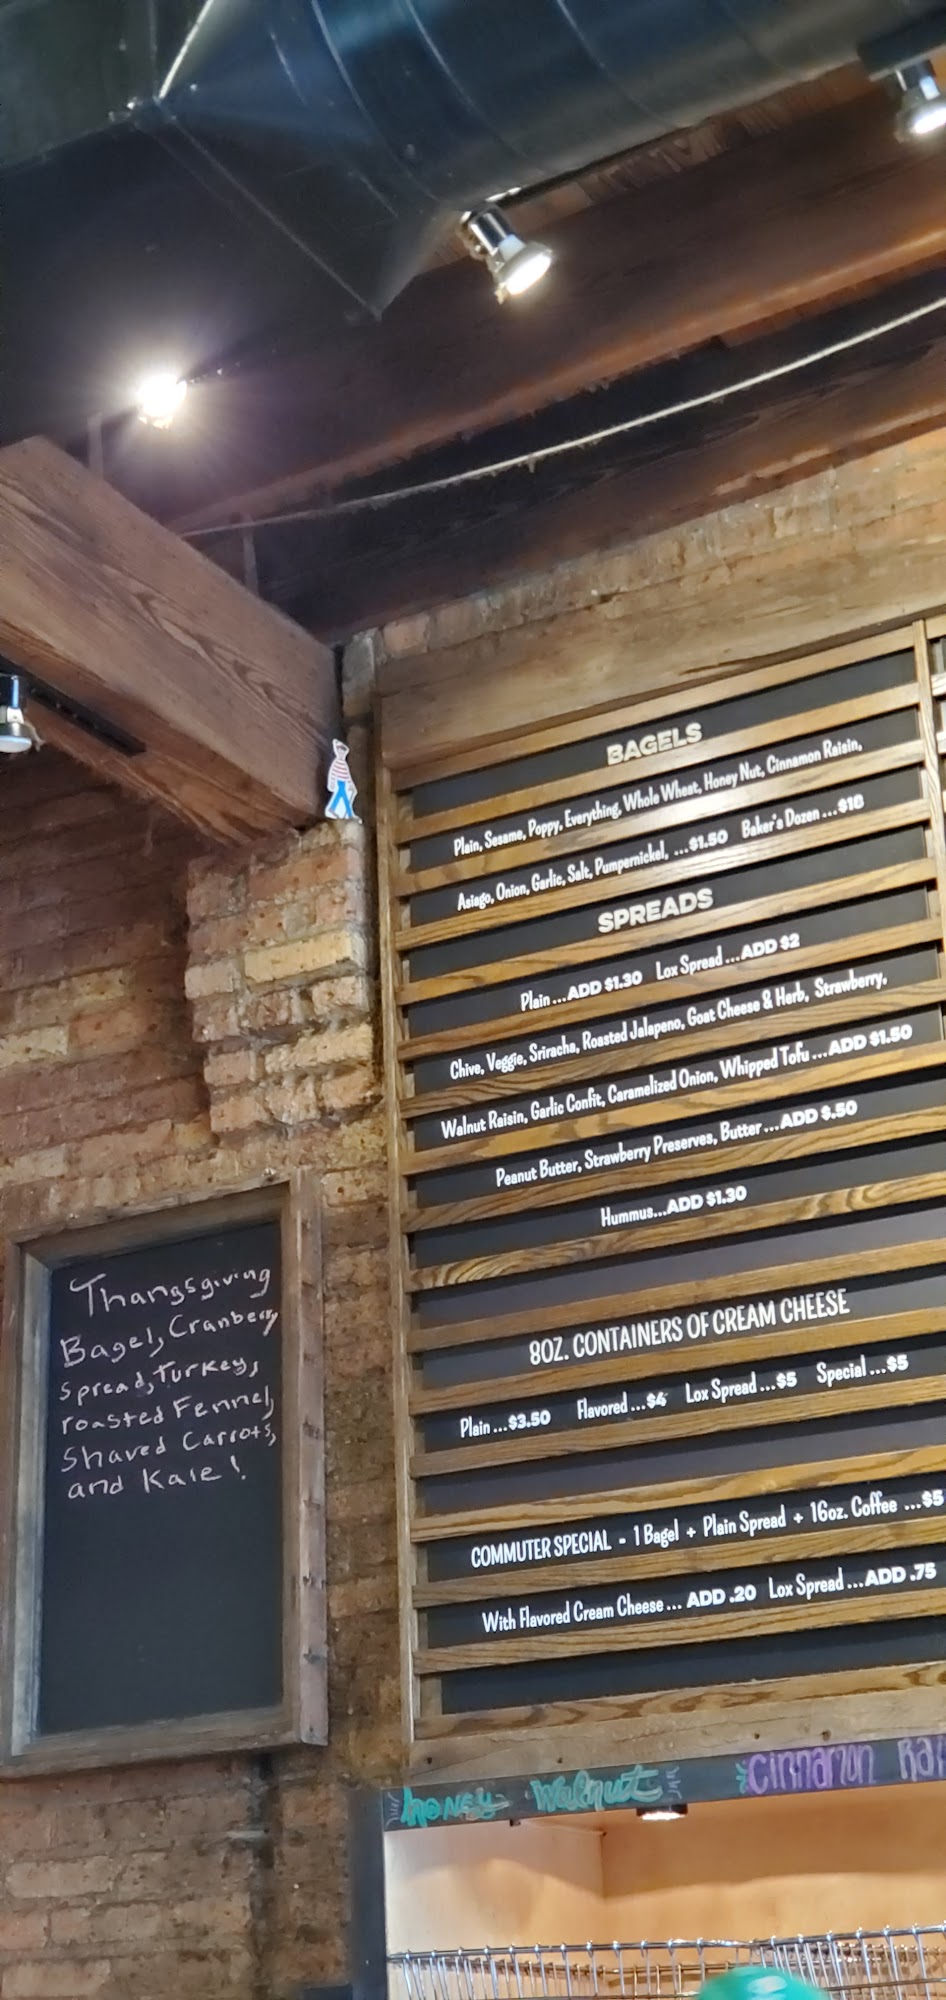 BAGELS
Plain, Sesame, Poppy, Everything, Whole Wheat, Honey Nut, Cinnamon Raisin,
Asiago, Onion, Garlic, Salt, Pumpernickel, ...$1.50 Baker's Dozen ...$18
SPREADS
Plain ...ADD $1.30 Lox Spread ...ADD $2
Chive, Veggie, Sriracha, Roasted Jalapeno, Goat Cheese & Herb, Strawberry,
Walnut Raisin, Garlic Confit, Caramelized Onion, Whipped Tofu ...ADD $1.50
Peanut Butter, Strawberry Preserves, Butter ...ADD $.50
Hummus...ADD $1.30
8OZ. CONTAINERS OF CREAM CHEESE
Plain ...$3.50 Flavored ...$4 Lox Spread ...$5 Special ...$5
COMMUTER SPECIAL - 1 Bagel + Plain Spread + 16oz. Coffee ...$5
With Flavored Cream Cheese ... ADD .20 Lox Spread ...ADD .75
Thangsgiving
Bagel, Cranberry
Spread, Turkey,
roasted Fennel,
Shaved Carrots,
and Kale!
honey walnut
cinnamon Rai